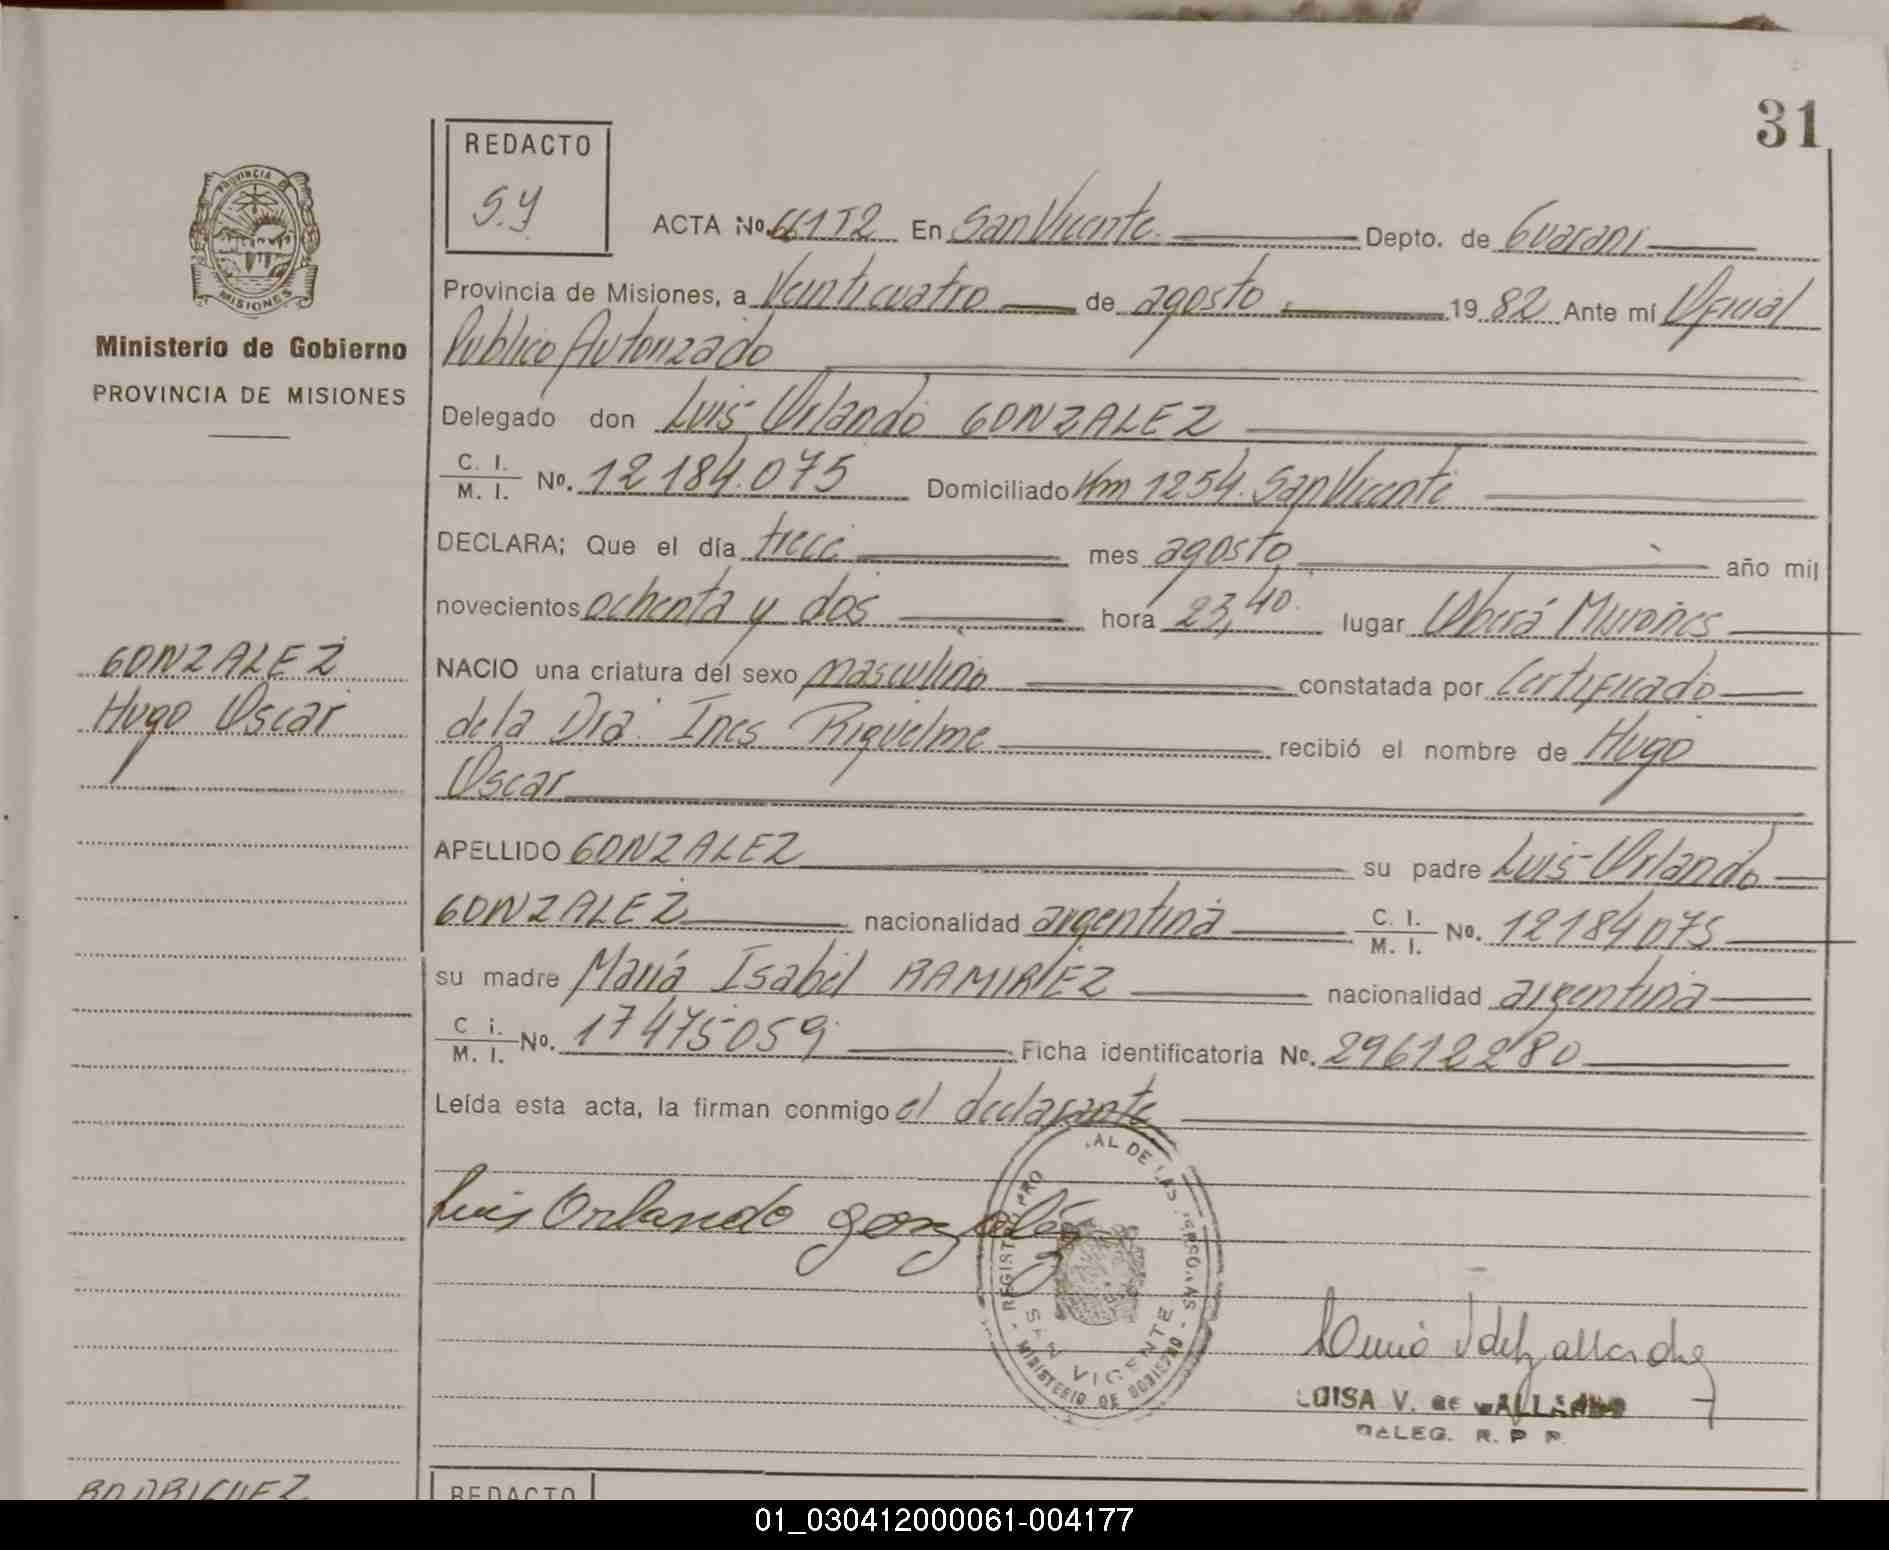 31
REDACTO
S.Y
PROVINCIA DE
MISIONES
Ministerio de Gobierno
PROVINCIA DE MISIONES
ACTA Nº 661T2 En San Vicente. Depto. de Guarani
Provincia de Misiones, a Veinticuatro de agosto 1982 Ante mí Oficial
Publico Autorizado
Delegado don Luis Orlando GONZALEZ
C. I.
M. I. Nº. 12184.075 Domiciliado Km 1254. San Vicente
DECLARA; Que el día trece mes agosto año mil
novecientos ochenta y dos hora 23,40. lugar Oberá Misiones
GONZALEZ
Hugo Oscar
NACIO una criatura del sexo masculino constatada por Certificado
de la Dra. Ines Riquelme recibió el nombre de Hugo
Oscar
APELLIDO GONZALEZ su padre Luis Orlando
GONZALEZ nacionalidad argentina C. I.
M. I. Nº. 12184075
su madre María Isabel RAMIREZ nacionalidad argentina
C i.
M. I. Nº. 17475059 Ficha identificatoria Nº. 29612280
Leída esta acta, la firman conmigo el declarante
Luis Orlando gonzalez
SAN VICENTE
MINISTERIO DE GOBIERNO
LUISA V. DE
DELEG. R. P P.
RODRIGUEZ
REDACTO
01_030412000061-004177